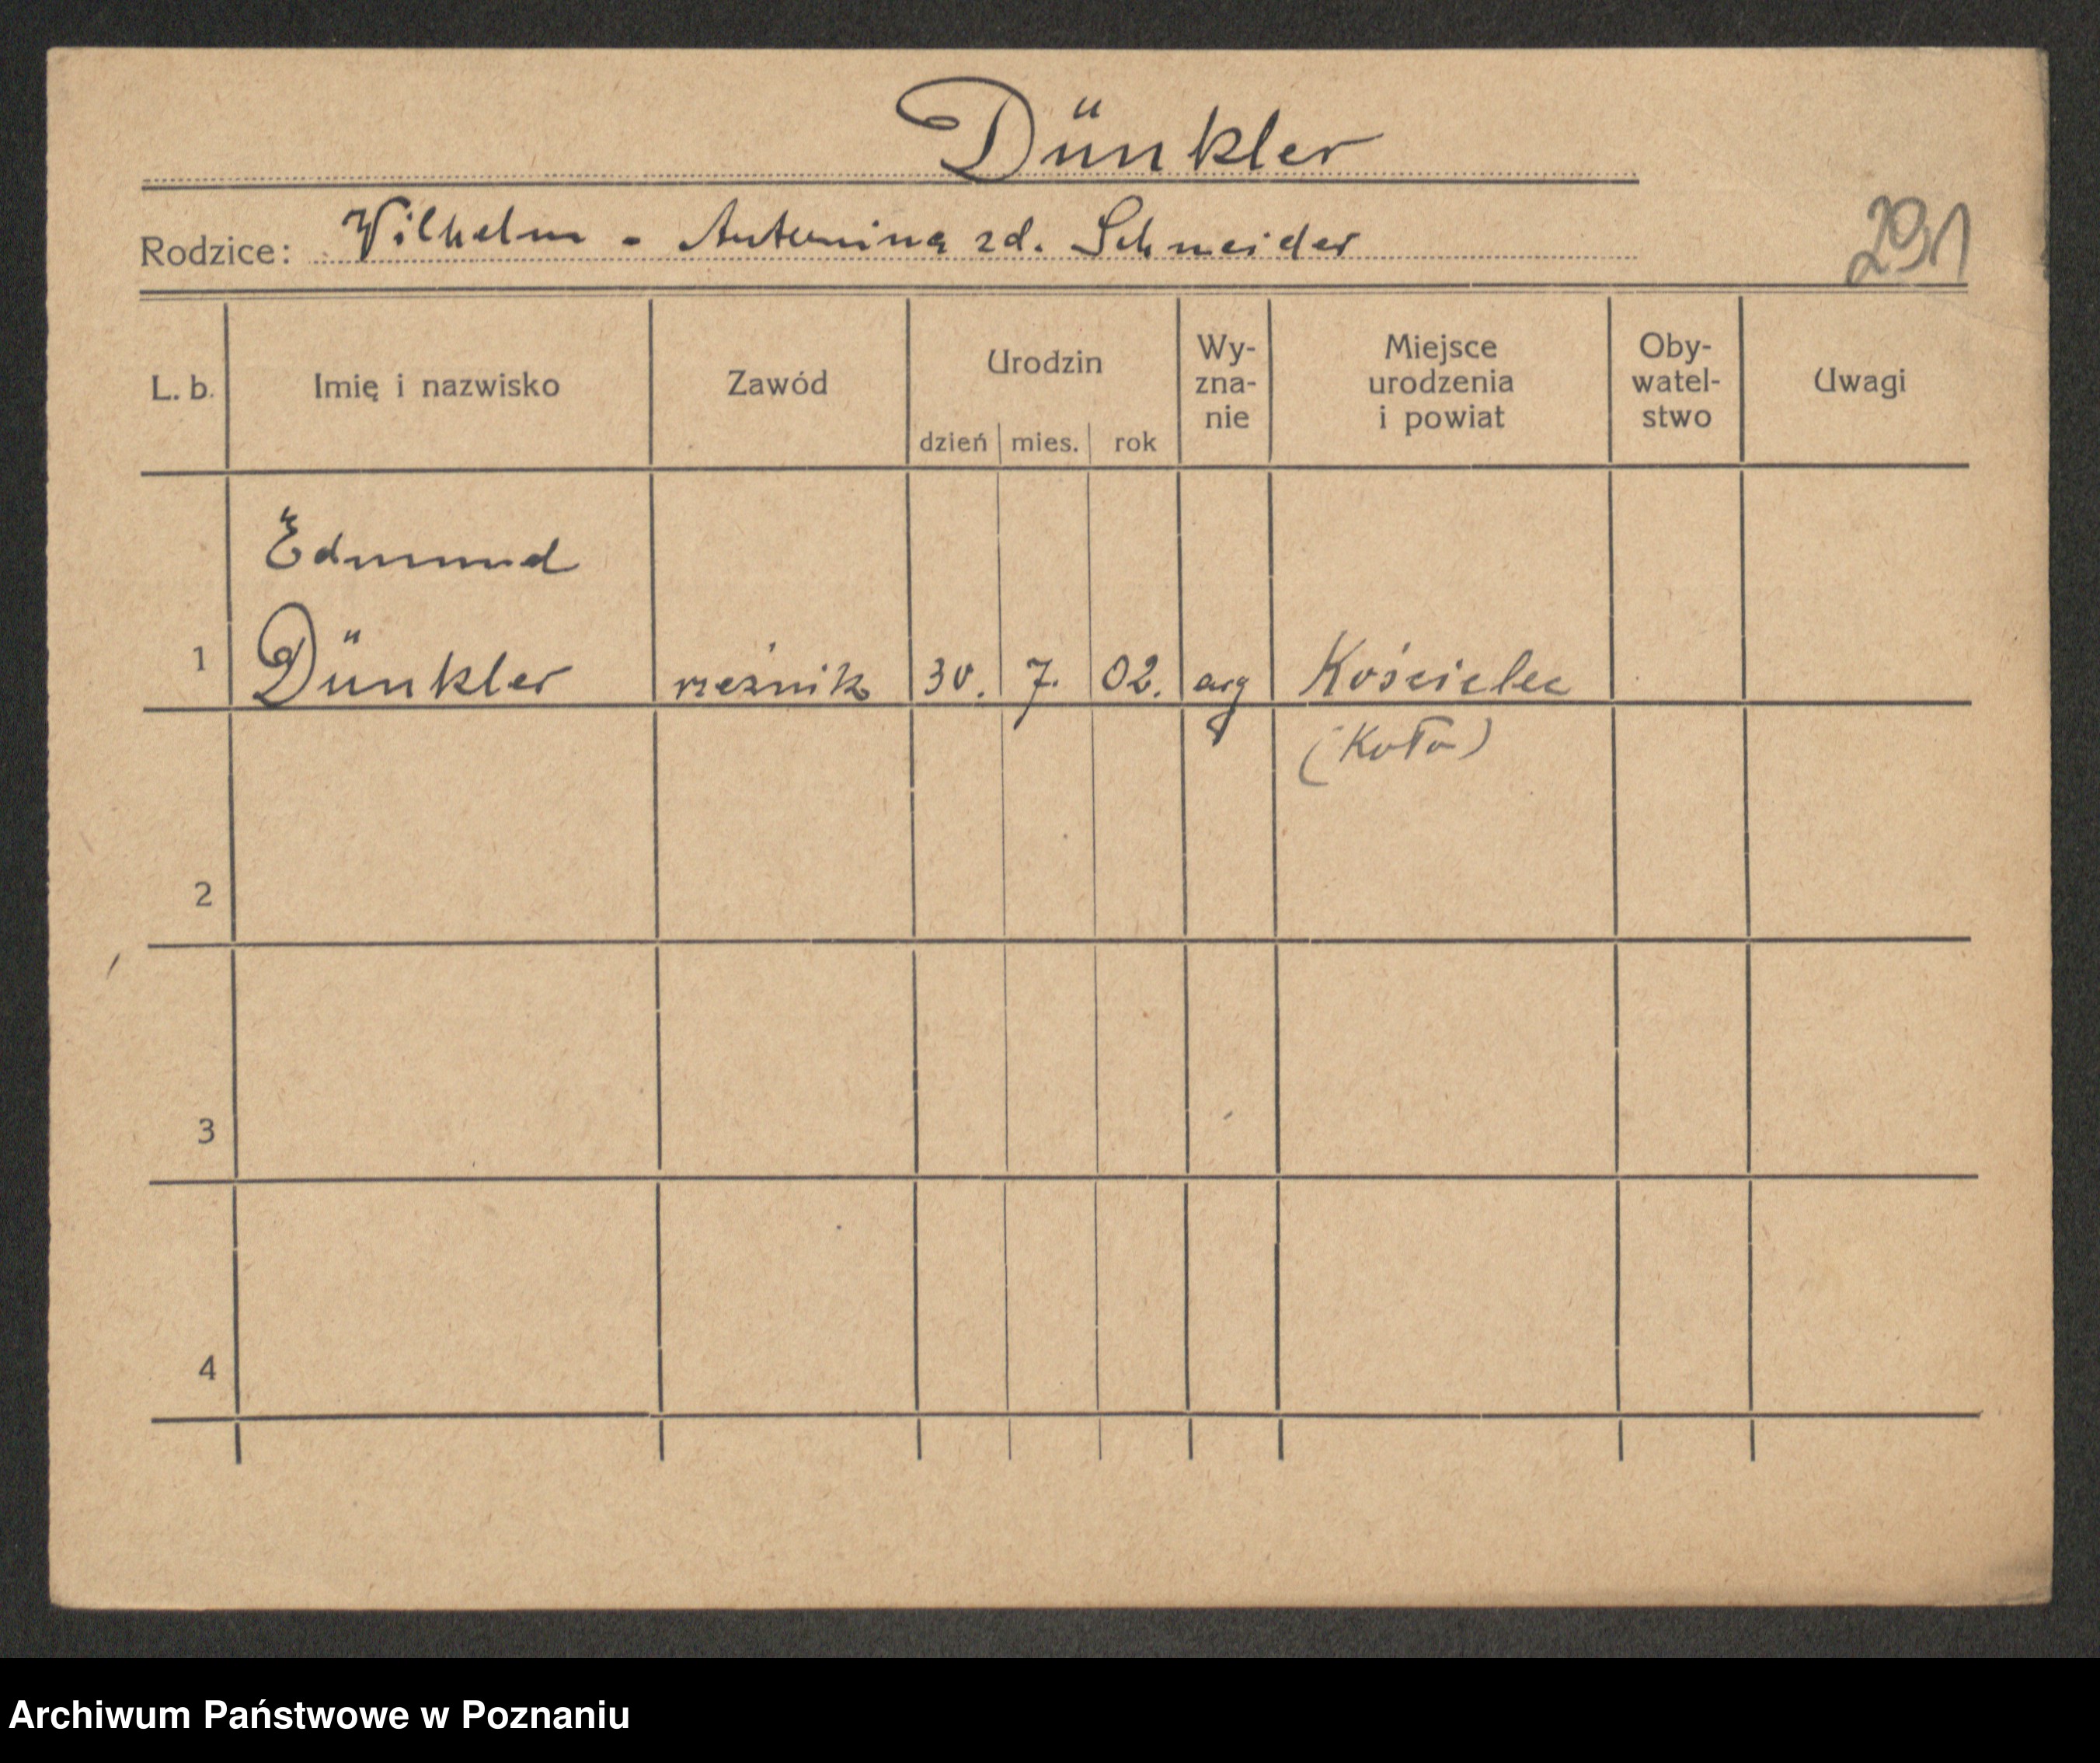 Dünkler
Rodzice: Wilhelm - Antonina zd. Schneider
291
L. b. Imię i nazwisko Zawód Urodzin dzień mies. rok Wy-zna-nie Miejsce urodzenia i powiat Oby-watel-stwo Uwagi
Edmund
1 Dünkler rzeźnik 30. 7. 02. Kościelec
(Koło)
2
3
4
Archiwum Państwowe w Poznaniu